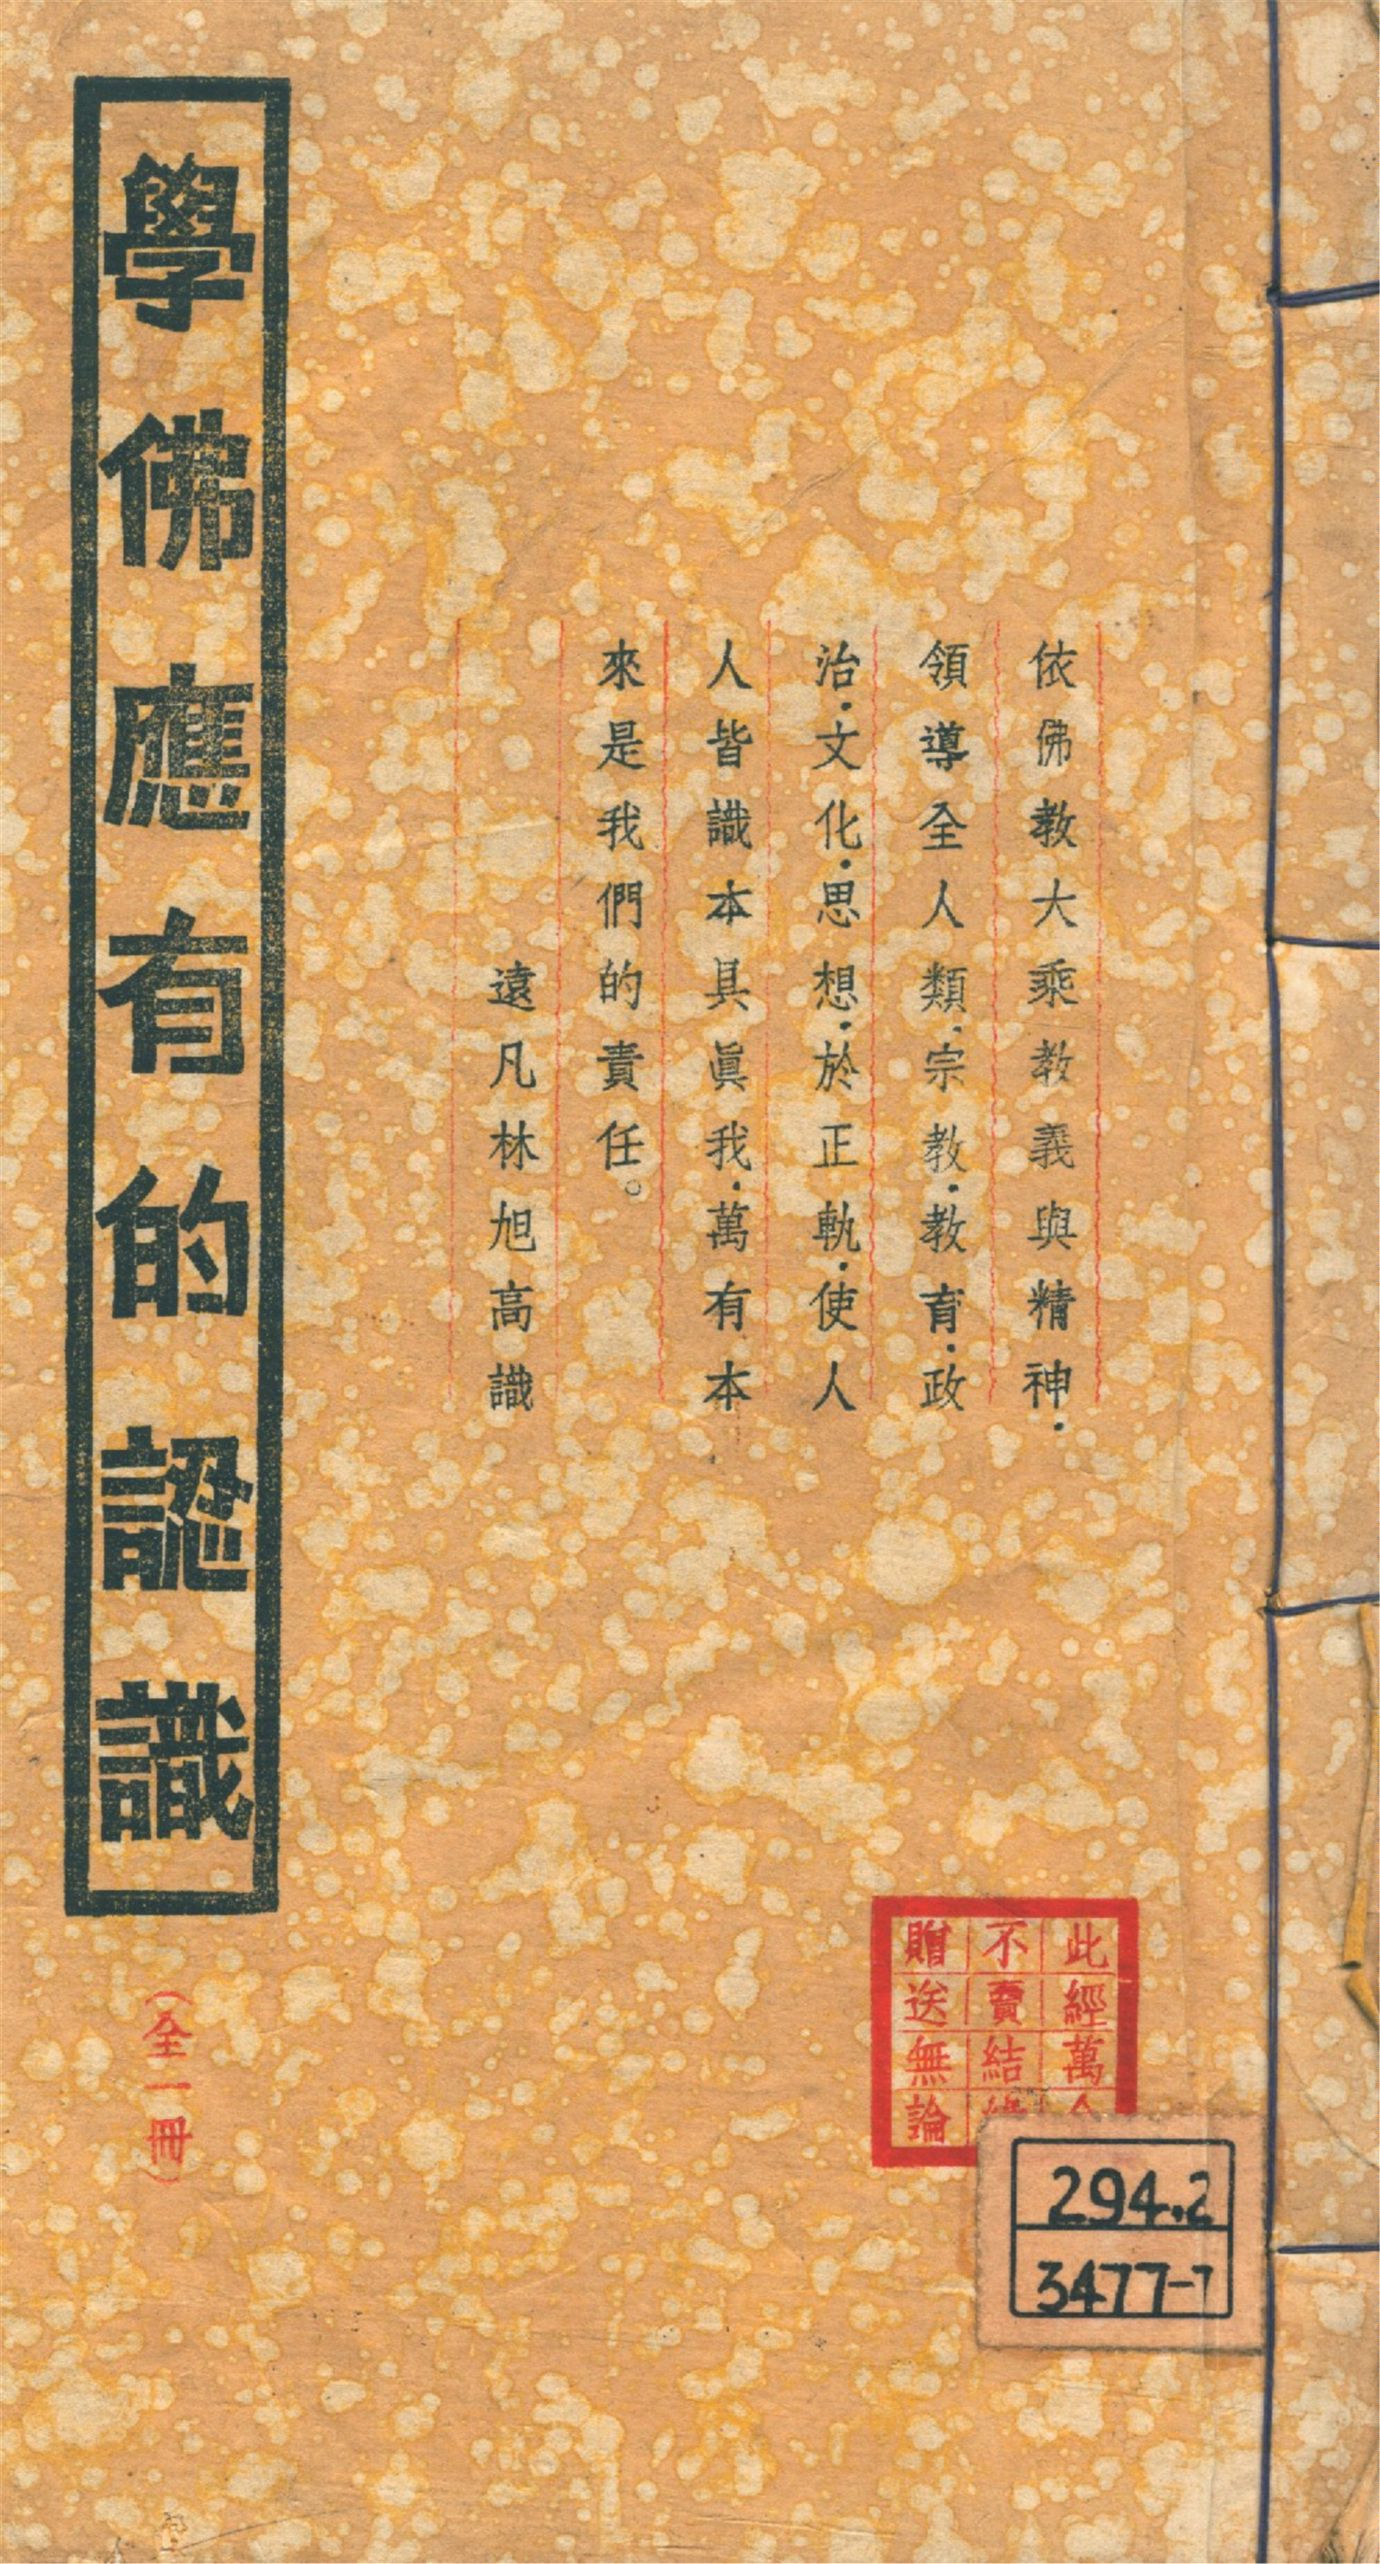 依佛教大乘教義與精神.
領導全人類.宗教.教育.政
治.文化.思想.於正軌.使人
人皆識本具眞我.萬有本
來是我們的責任。
遠凡林旭高識
學佛應有的認識
(全一冊)
此經萬
不賣結
贈送無論
294.2
3477-7